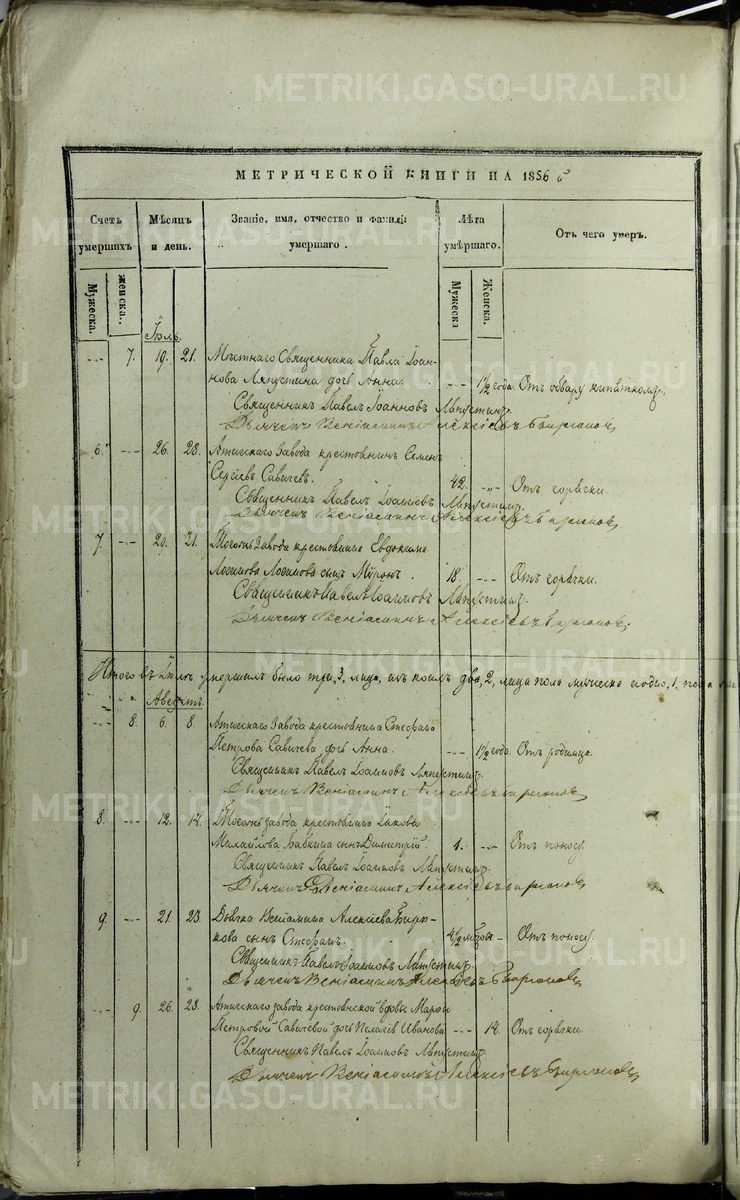 METRIKI.GASO-URAL.RU
МЕТРИЧЕСКОЙ КНИГИ НА 1856 й
Счетъ умершихъ
Мѣсяцъ и день.
Званіе, имя, отчество и фамилія умершаго.
Лѣта умершаго.
Отъ чего умеръ.
Мужеска.
женска.
Мужеска
Женска.
Іюль
7. 19. 21. Мѣстнаго Священника Павла Іоан-
нова Ляпустина дочь Анна. 1½ года. Отъ обвару кипяткомъ.
Священникъ Павелъ Іоанновъ Ляпустинъ.
Дьячекъ Веніаминъ Алексіевъ Бирюковъ
6. 26. 28. Атигскаго Завода крестьянинъ Семенъ
Сергіевъ Савичевъ. 42. Отъ горячки.
Священникъ Павелъ Іоанновъ Ляпустинъ.
Дьячекъ Веніаминъ Алексіевъ Бирюковъ
7. 29. 31. Завода крестьянина Евдокима
сынъ Миронъ. 18. Отъ горячки.
Священникъ Павелъ Іоанновъ Ляпустинъ.
Дьячекъ Веніаминъ Алексіевъ Бирюковъ
Итого въ Іюлѣ умершихъ было три, 3, лица, изъ коихъ два, 2, лица пола мужеска и одно, 1, пола
Августъ.
8. 6. 8. Атигскаго Завода крестьянина Стефана
Петрова Савичева дочь Анна. 1½ года. Отъ родимца.
Священникъ Павелъ Іоанновъ Ляпустинъ.
Дьячекъ Веніаминъ Алексіевъ Бирюковъ
8. 12. 14. завода крестьянина Іакова
Михайлова Бабкина сынъ Димитрій. 1. Отъ поносу.
Священникъ Павелъ Іоанновъ Ляпустинъ.
Дьячекъ Веніаминъ Алексіевъ Бирюковъ
9. 21. 23. Дьячка Веніамина Алексіева Бирю-
кова сынъ Стефанъ. 4½ Отъ поносу.
Священникъ Павелъ Іоанновъ Ляпустинъ.
Дьячекъ Веніаминъ Алексіевъ Бирюковъ
9. 26. 28. Атигскаго завода крестьянской вдовы Марѳы
Петровой Савичевой дочь Пелагія Иванова 14. Отъ горячки.
Священникъ Павелъ Іоанновъ Ляпустинъ.
Дьячекъ Веніаминъ Алексіевъ Бирюковъ